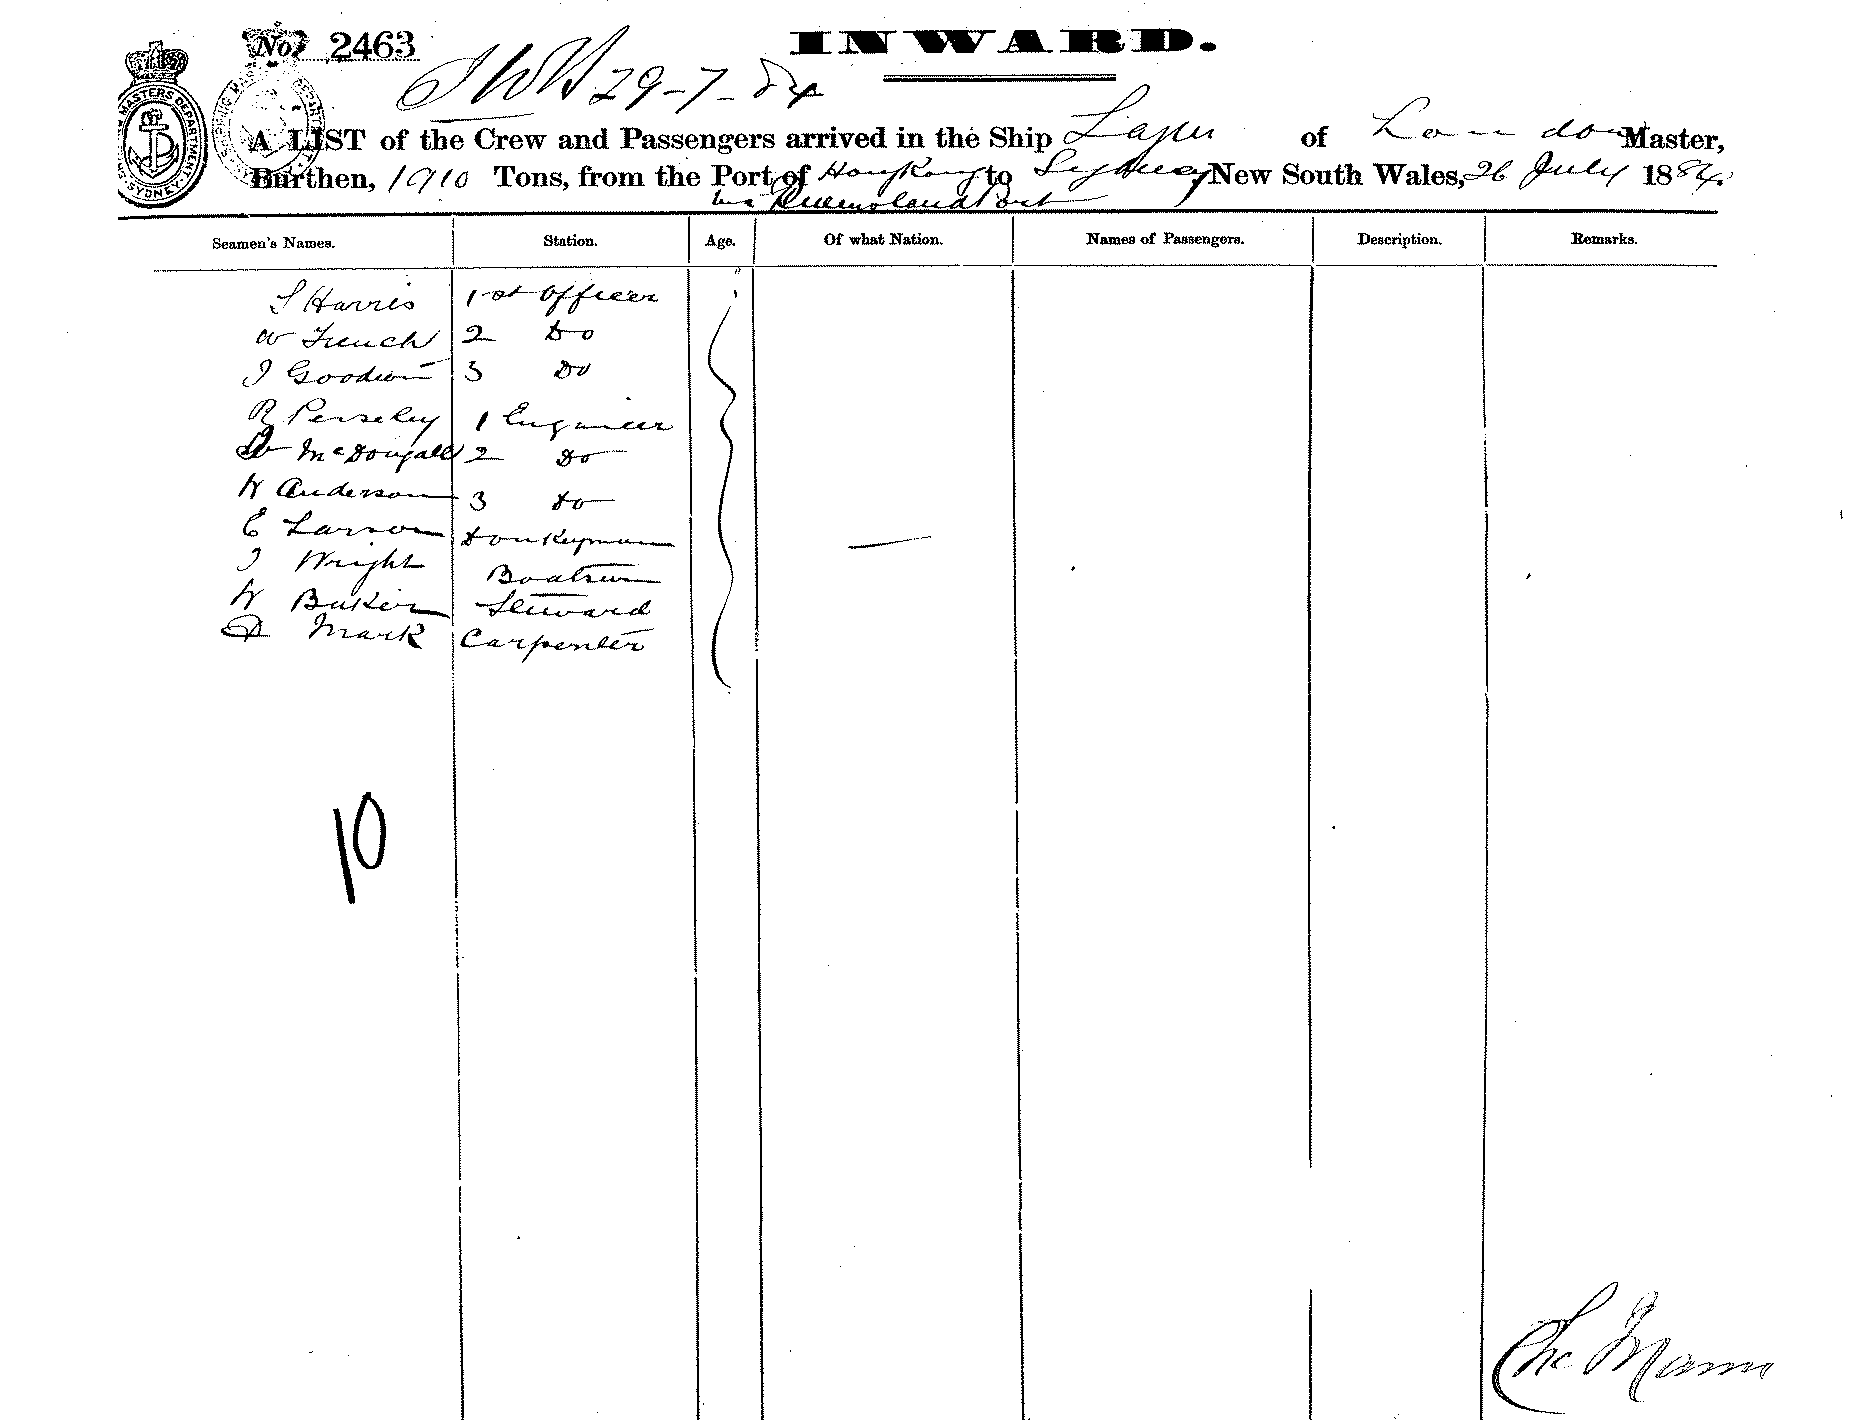 No. 2463
INWARD.
29-7-84
A LIST of the Crew and Passengers arrived in the Ship of London Master,
Burthen, 1910 Tons, from the Port of HongKong to Sydney New South Wales, 26 July 1884.
via Queensland Port
Seamen's Names. Station. Age. Of what Nation. Names of Passengers. Description. Remarks.
S Harris 1st Officer
W French 2 Do
J Goodwin 3 Do
R Perseley 1 Engineer
McDougall 2 Do
W Anderson 3 Do
E Larson Donkeyman
J Wright Boatsun
W Baker Steward
D Mark Carpenter
10